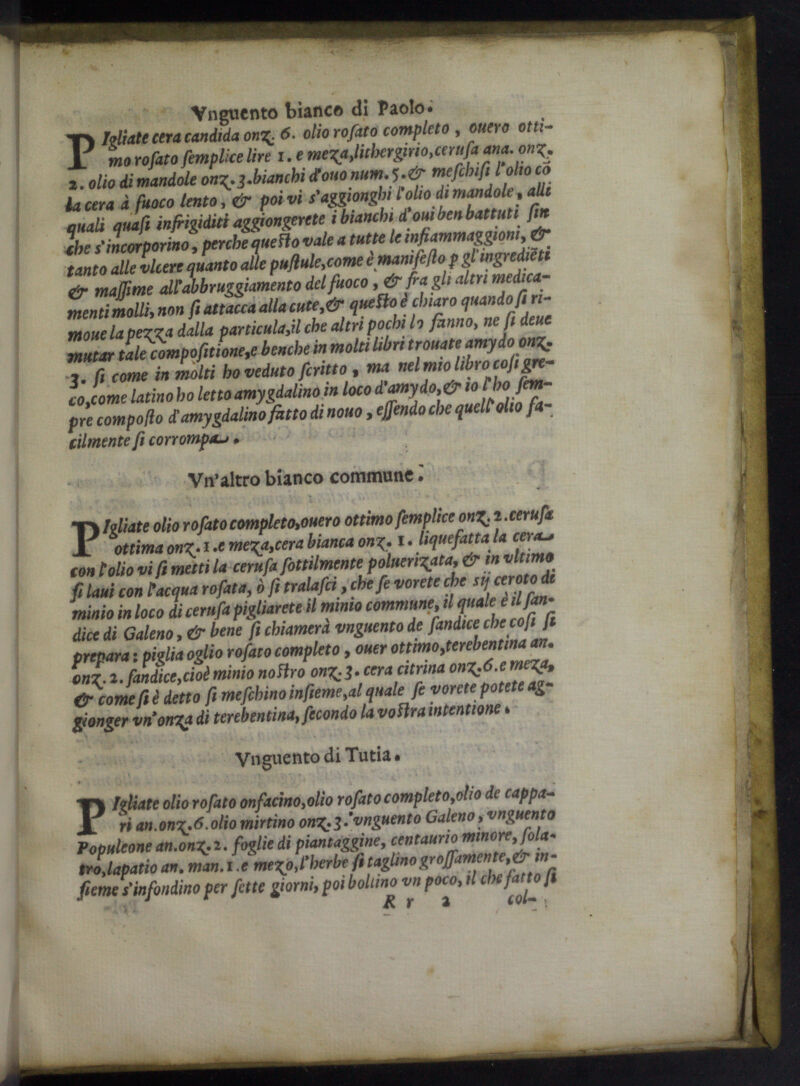 Vnguento bianco di Paolo.
PIgliate cera candida onz. 6. olio rosato completo, ouero otti-
mo rosato semplice lire 1. e meza, lithergirio, cerusa ana. onz.
2. olio di mandole onz. 3. bianchi d'ouo num. 5. & meschisi l'olio cõ
la cera à fuoco lento, & poi vi s'aggionghi l'olio di mandole, alli
quali quasi infrigiditi aggiongerete i bianchi d'oui ben battuti fin
che s'incorporino, perche questo vale a tutte le infiammaggioni, &
tanto alle vlcere quanto alle pustule, come è manifesto p gl'ingrediēti
& massime all'abbruggiamento del fuoco, & fra gli altri medica-
menti molli, non si attacca alla cute, & questo è chiaro quando si ri-
moue la pezza dalla particula, il che altri pochi lo fanno, ne si deue
mutar tale compositione, e benche in molti libri trouate amydo onz.
3. si come in molti ho veduto scritto, ma nel mio libro cosi gre-
co, come latino ho letto amygdalino in loco d'amydo, & io l'ho sem-
pre composto d'amygdalino fatto di nouo, essendo che quell'olio fa-
cilmente si corrompa.
Vn'altro bianco commune.
PIgliate olio rosato completo, ouero ottimo semplice onz. 2. cerusa
ottima onz. 1. e meza, cera bianca onz. 1. liquefatta la cera
con l'olio vi si metti la cerusa sottilmente poluerizata, & in vltimo
si laui con l'acqua rosata, ò si tralasci, che se vorete che sij ceroto di
minio in loco di cerusa pigliarete il minio commune, il quale è il san-
dice di Galeno, & bene si chiamerà vnguento de sandice che cosi si
prepara: piglia oglio rosato completo, ouer ottimo, terebentina an.
onz. 2. sandice, cioè minio nostro onz. 3. cera citrina onz. 6. e meza,
& come si è detto si meschino insieme, al quale se vorete potete ag-
gionger vn'onza di terebentina, secondo la vostra intentione.
Vnguento di Tutia.
PIgliate olio rosato onfacino, olio rosato completo, olio de cappa-
ri an. onz. 6. olio mirtino onz. 3. vnguento Galeno, vnguento
Populeone an. onz. 2. foglie di piantaggine, centaurio minore, sola-
tro, lapatio an. man. 1. e mezo, l'herbe si taglino grossamente, & in-
sieme s'infondino per sette giorni, poi bollino vn poco, il che fatto si
R r 2 col-